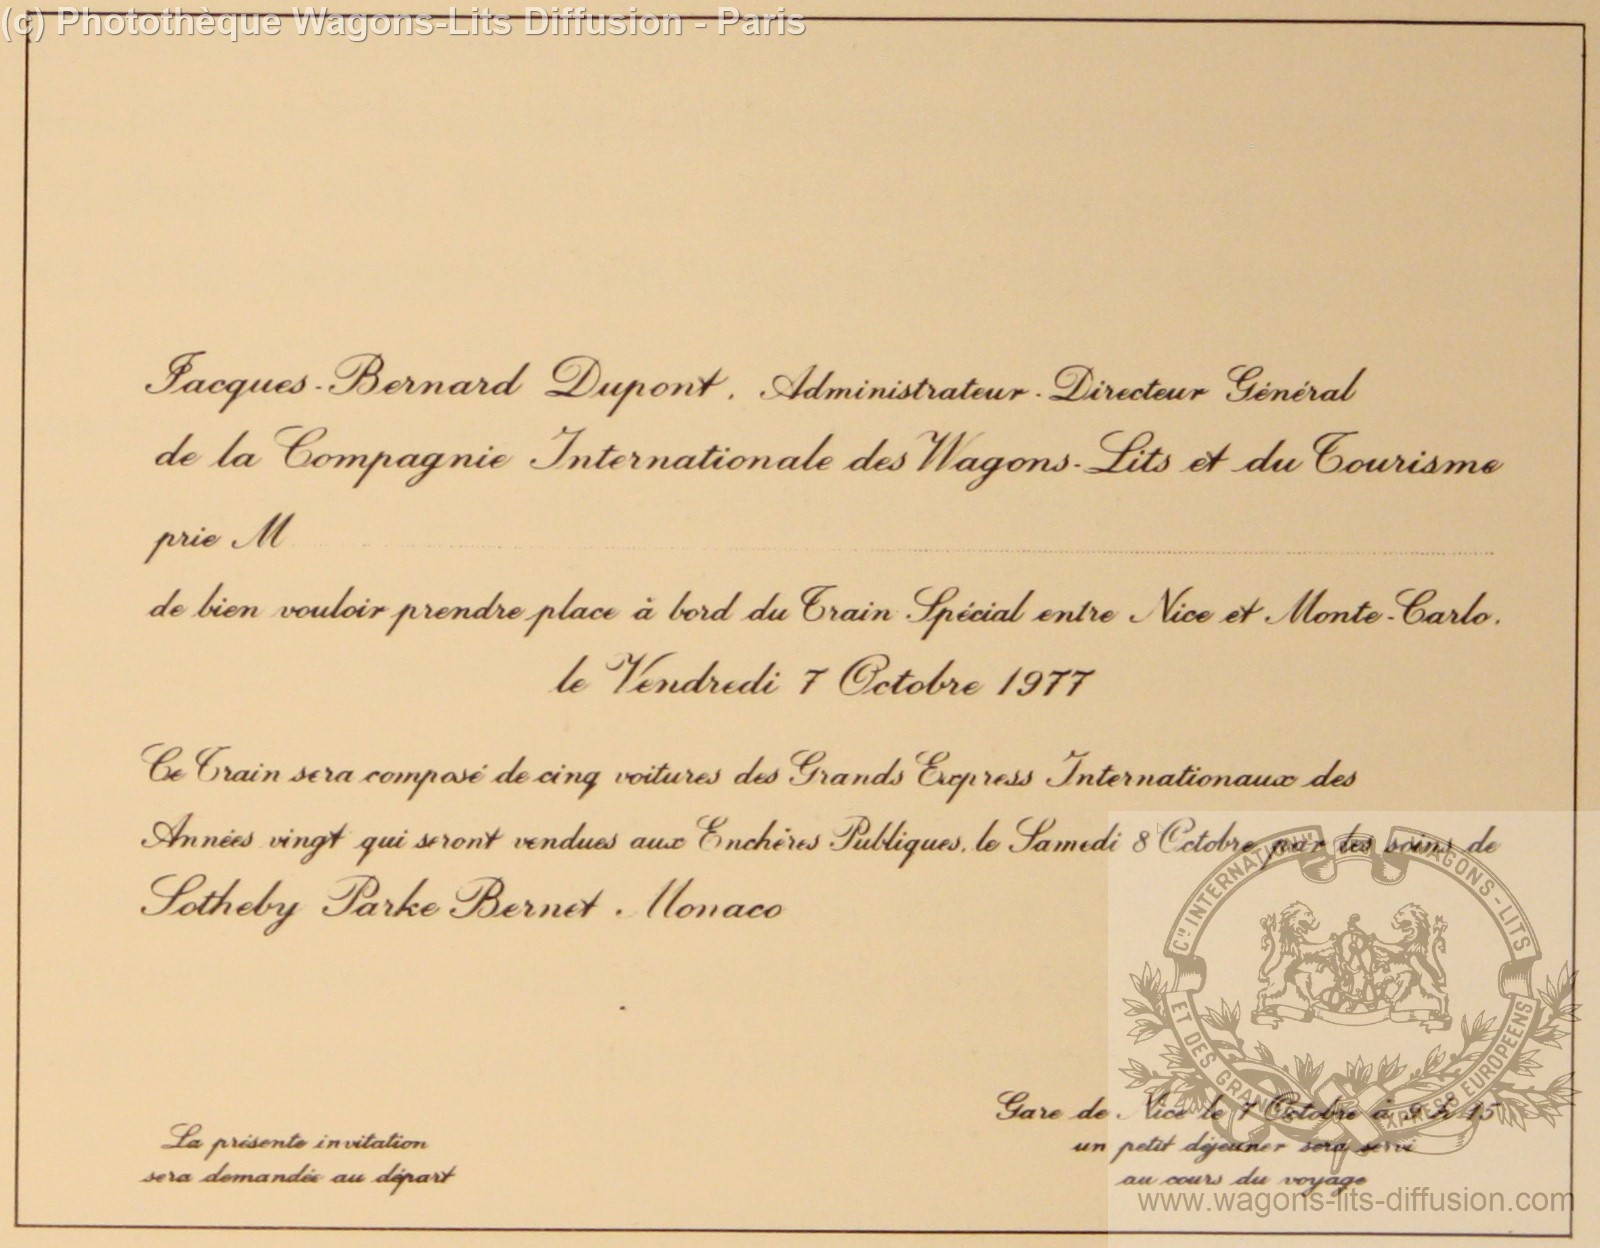 (c) Photothèque Wagons-Lits Diffusion - Paris
Jacques-Bernard Dupont, Administrateur-Directeur Général
de la Compagnie Internationale des Wagons-Lits et du Tourisme
prie M
de bien vouloir prendre place à bord du Train Spécial entre Nice et Monte-Carlo.
le Vendredi 7 Octobre 1977
Ce Train sera composé de cinq voitures des Grands Express Internationaux des
Années vingt qui seront vendues aux Enchères Publiques, le Samedi 8 Octobre par les soins de
Sotheby Parke Bernet. Monaco
CIE INTERNATIONALE DES WAGONS-LITS
ET DES GRANDS EXPRESS EUROPEENS
Gare de Nice le 7 Octobre à 9 h 45
un petit déjeuner sera servi
au cours du voyage
La présente invitation
sera demandée au départ
www.wagons-lits-diffusion.com